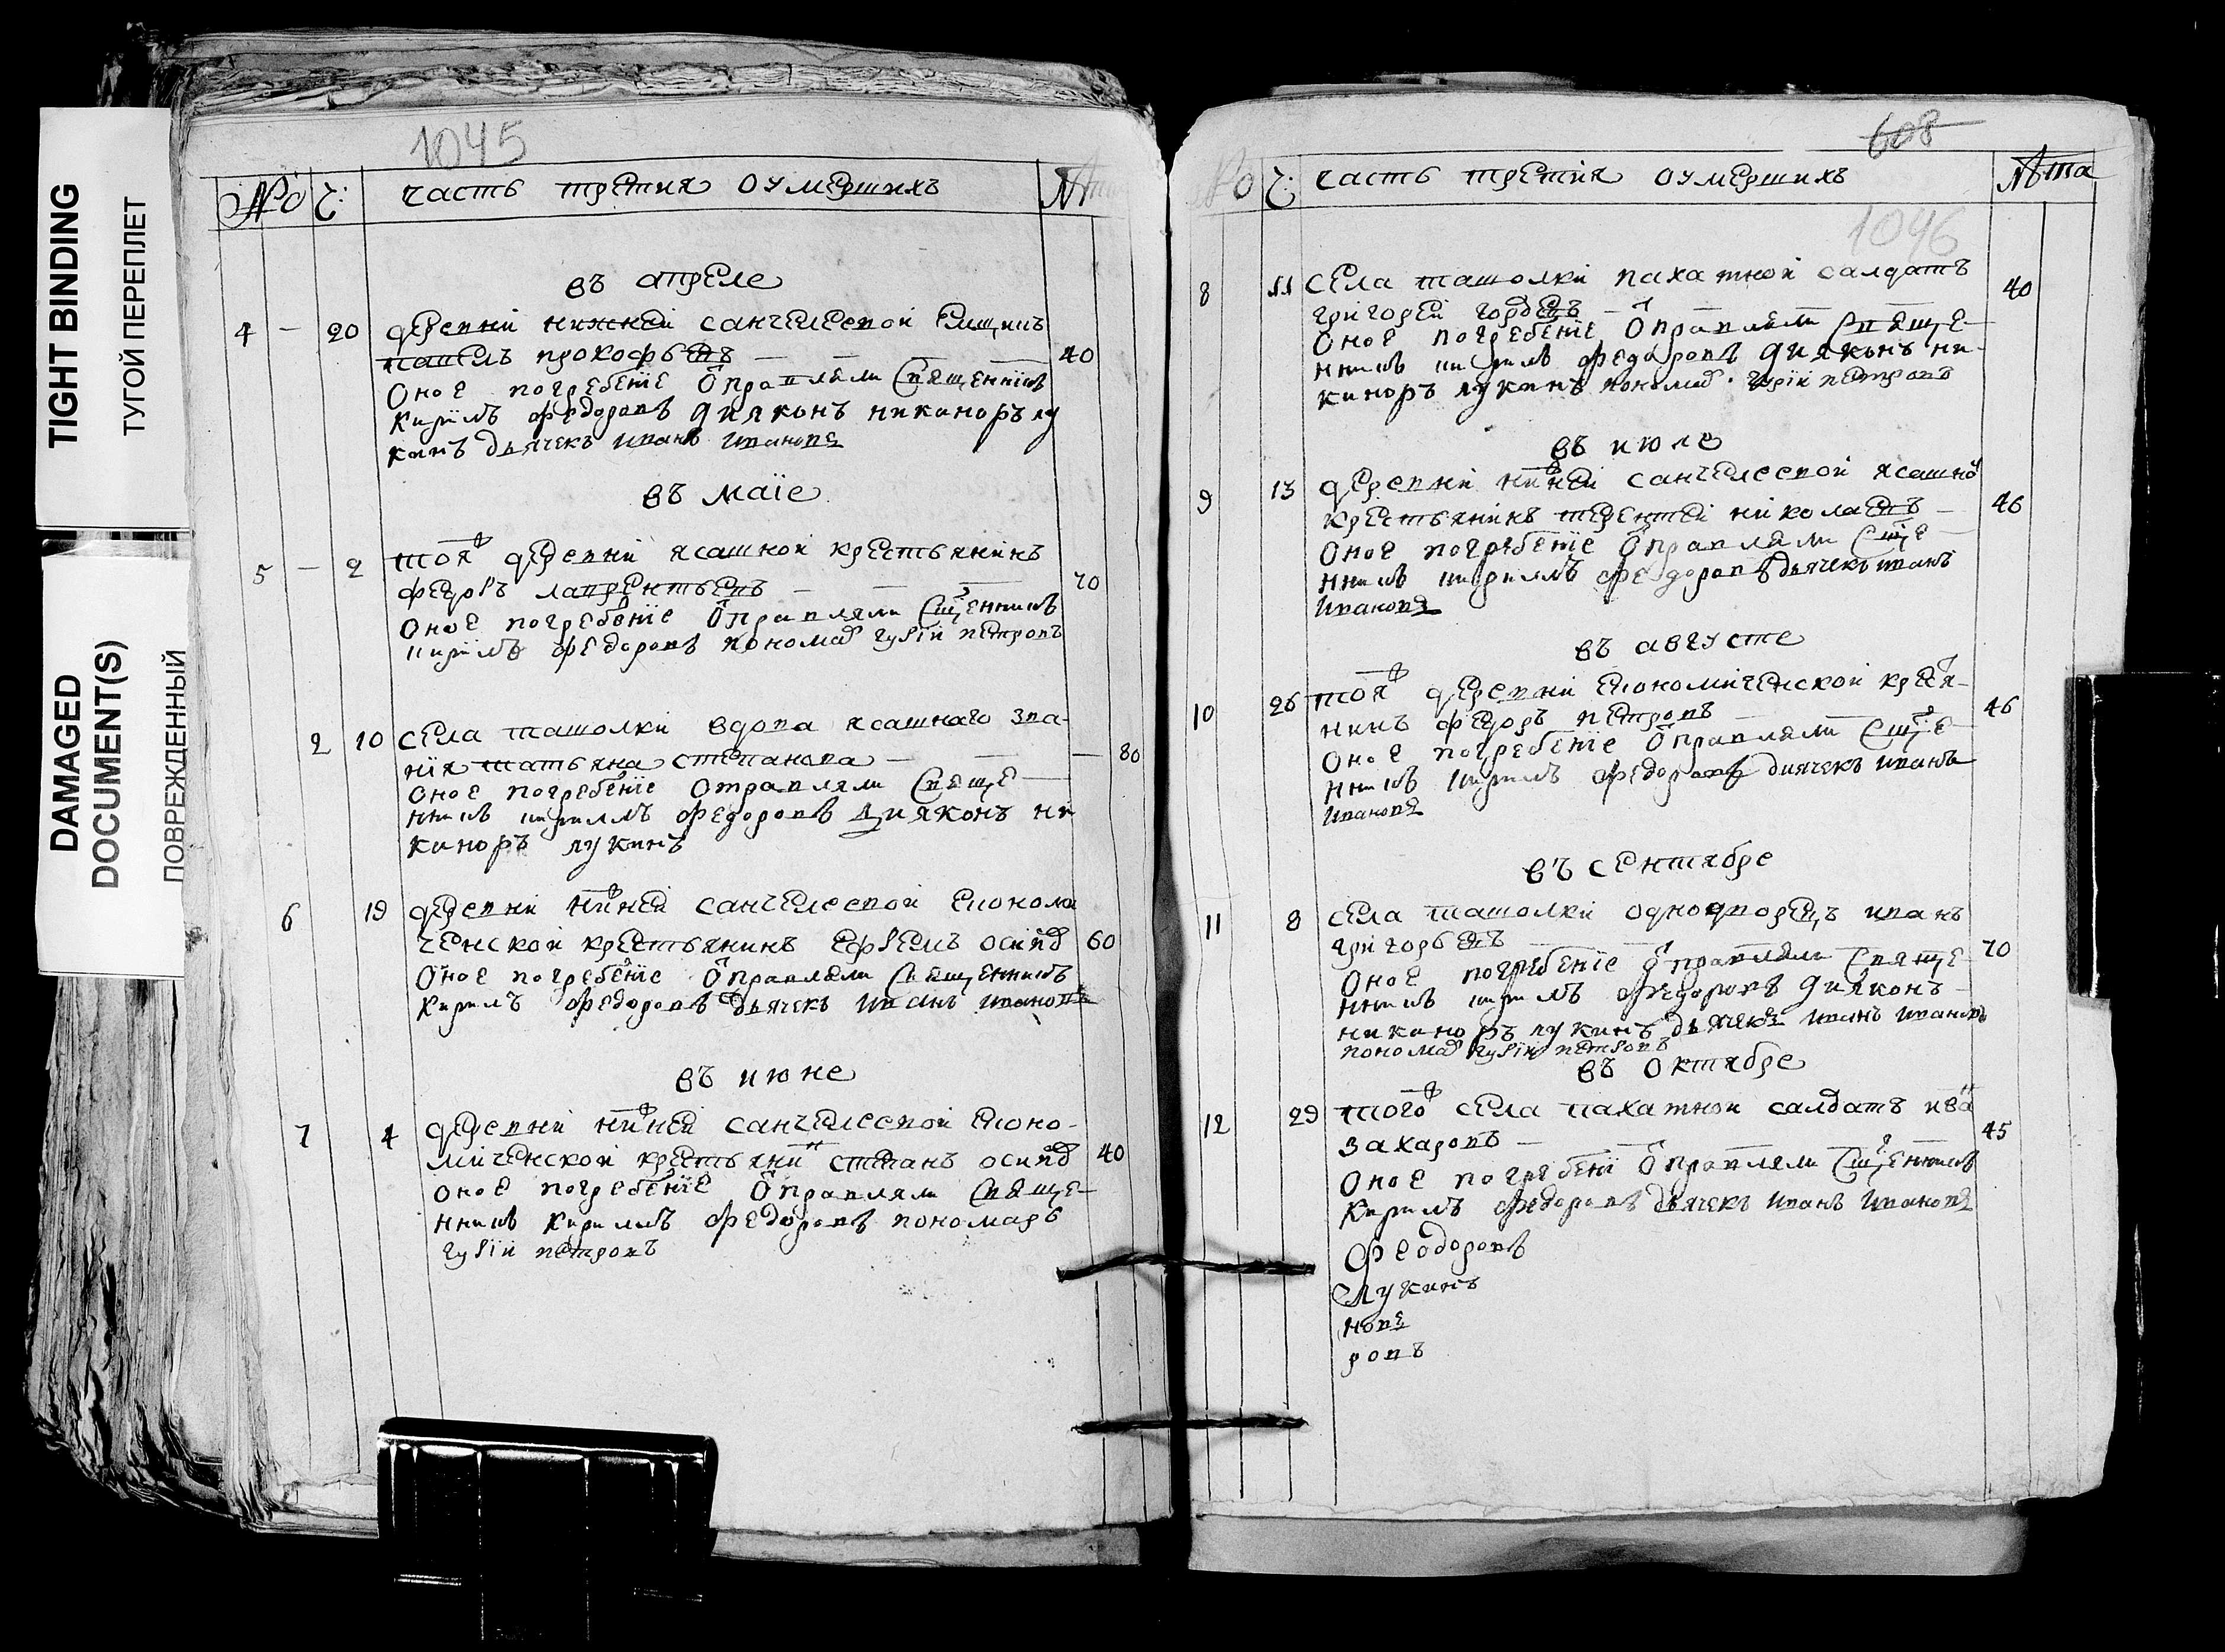 TIGHT BINDING
ТУГОЙ ПЕРЕПЛЕТ
DAMAGED
DOCUMENT(S)
ПОВРЕЖДЕННЫЙ
1045
№о Ч: часть третия оумершихъ
въ апреле
4 — 20 деревни нижней санчелеевой
павелъ прокофьевъ — 40
Оное погребенїе ѿправляли Священникъ
Кирилъ федоровъ дияконъ никаноръ лу
кинъ дьячекъ иванъ ивановъ
въ маїе
5 — 2 тояж деревни ясашной крестьянинъ
федоръ лаврентьевъ — 70
Оное погребенїе ѿправляли Сщенникъ
кирилъ федоровъ понома гурїй петровъ
2 10 села ташолки вдова ясашнаго зва-
нїя татьяна степанова — 80
Оное погребенїе отравляли Свяще
нникъ кириллъ федоровъ дияконъ ни
каноръ лукинъ
6 19 деревни нижней санчелеевой економи
ченской крестьянинъ ефремъ осипо 60
Оное погребенїе ѿправляли Священникъ
Кирилъ федоровъ дьячекъ иванъ ивановъ
въ июне
7 4 деревни нижней санчелеевой еконо-
миченской крестьянинъ степанъ осипо 40
Оное погребенїе ѿправляли Свяще-
нникъ Кириллъ федоровъ пономарь
гурїй петровъ
608
№о Ч: часть третїя оумершихъ лѣта
1046
8 11 села ташолки пахатной салдатъ
григорей гордевъ — 40
Оное погребенїе ѿправляли Свяще-
нникъ кирилъ федоровъ дияконъ ни-
каноръ лукинъ понома гурїй петровъ
въ июле
9 13 деревни нижней санчелеевой ясашно
крестьянинъ терентей николаевъ — 46
Оное погребенїе ѿправляли Сще-
нникъ кириллъ федоровъ дьячекъ иванъ
ивановъ
въ августе
10 26 тояж деревни економиченской кретя-
нинъ федоръ петровъ 46
Оное погребенїе ѿправляли Сще-
нникъ кирилъ федоровъ диячекъ иванъ
ивановъ
въ сентябре
11 8 села ташолки однодворецъ иванъ
григорьевъ 70
Оное погребенїе ѿправляли Свяще
нникъ кирилъ федоровъ дияконъ
никаноръ лукинъ дьячекъ иванъ ивановъ
понома гурїй петровъ
въ октябре
12 29 того ж села пахатной салдатъ ива
захаровъ — 45
Оное погребенї ѿправляли Сщенникъ
Кирилъ федоровъ дьячекъ иванъ ивановъ
Феодоровъ
Лукинъ
новъ
ровъ